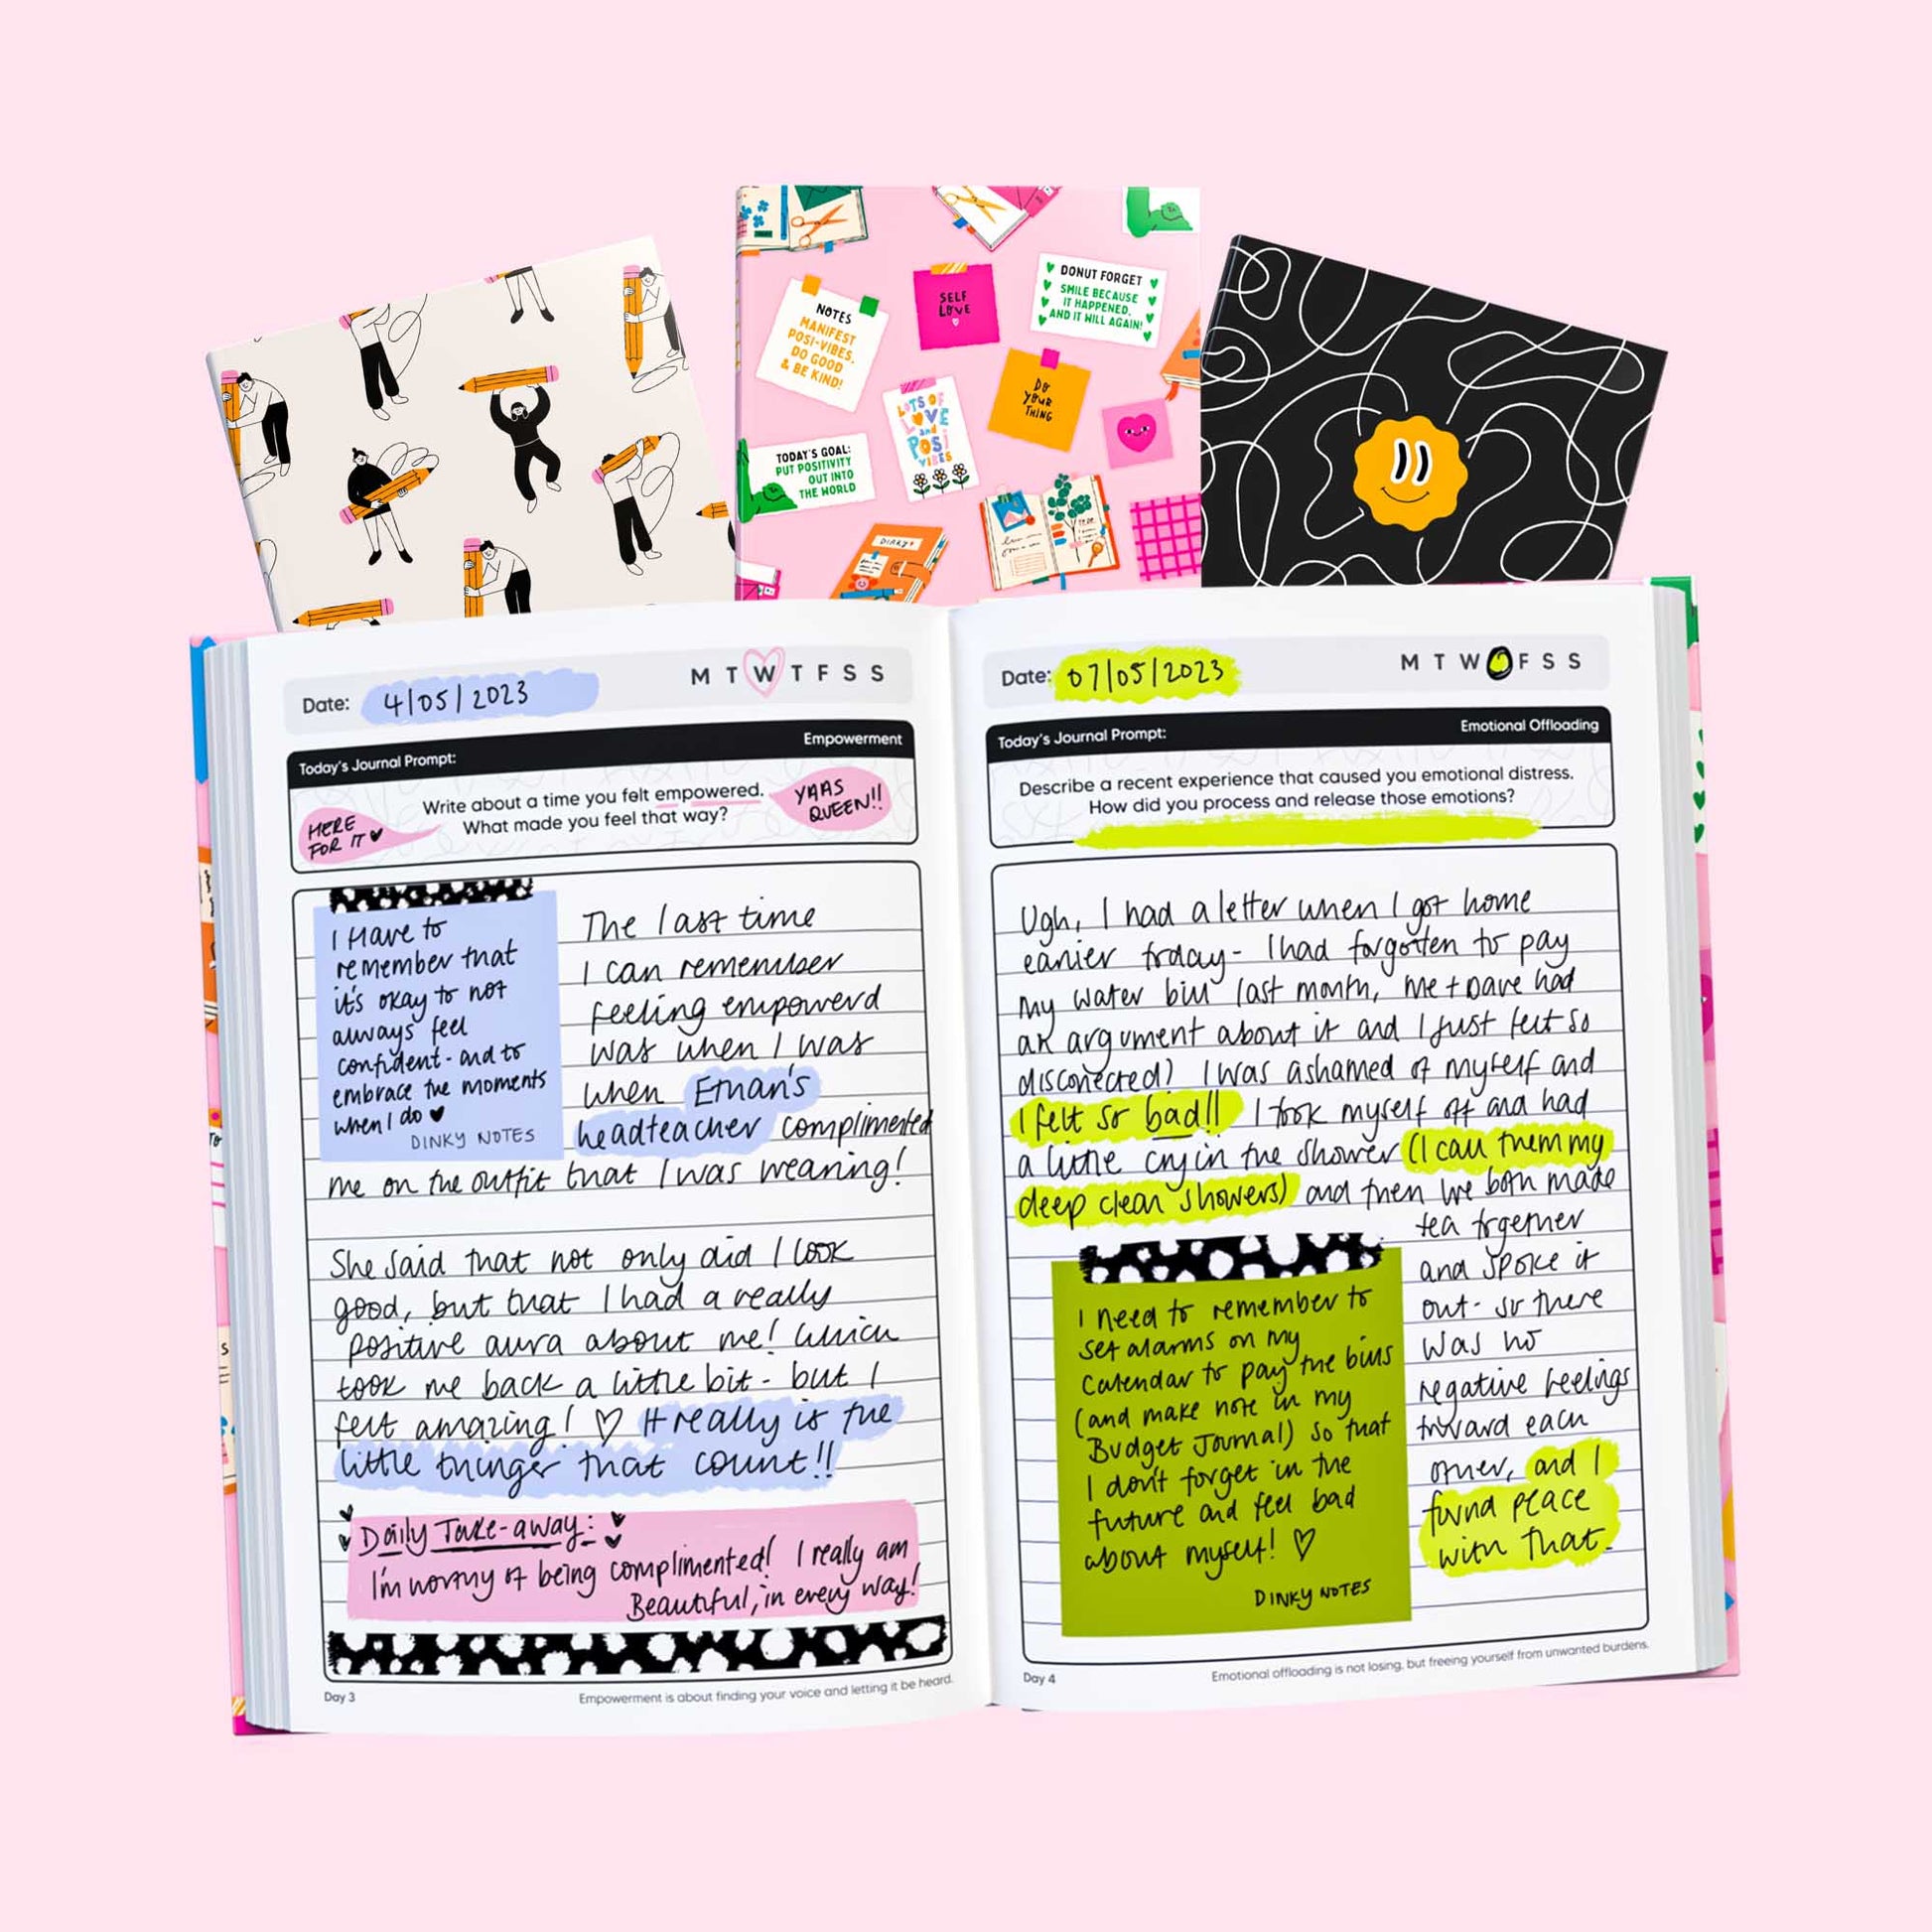 NOTES
MANIFEST
POSI-VIBES.
DO GOOD
& BE KIND!
SELF
LOVE
DONUT FORGET
SMILE BECAUSE
IT HAPPENED,
AND IT WILL AGAIN!
LOTS OF
LOVE
and
POSI
VIBES
DO
YOUR
THING
TODAY'S GOAL:
PUT POSITIVITY
OUT INTO
THE WORLD
DIARY
Date: 4/05/2023
M T W T F S S
Today's Journal Prompt:
Empowerment
Write about a time you felt empowered.
What made you feel that way?
HERE
FOR IT
YAAS
QUEEN!!
I Have to
remember that
it's okay to not
always feel
confident - and to
embrace the moments
when I do ♥
DINKY NOTES
The last time
I can remember
feeling empowerd
was when I was
when Ethan's
headteacher complimented
me on the outfit that I was wearing!
She said that not only did I look
good, but that I had a really
positive aura about me! Which
took me back a little bit - but I
felt amazing! ♡ It really is the
little things that count!!
Daily Take-away:
I'm worthy of being complimented! I really am
Beautiful, in every way!
Day 3
Empowerment is about finding your voice and letting it be heard.
Date: 07/05/2023
M T W F S S
Today's Journal Prompt:
Emotional Offloading
Describe a recent experience that caused you emotional distress.
How did you process and release those emotions?
Ugh, I had a letter when I got home
earlier today - I had forgotten to pay
my water bill last month, me + Dave had
an argument about it and I just felt so
disconected) I was ashamed of myself and
I felt so bad!! I took myself off and had
a little cry in the shower (I call them my
deep clean showers) and then we both made
tea together
and spoke it
out - so there
was no
negative feelings
toward each
other, and I
found peace
with that.
I need to remember to
set alarms on my
Calendar to pay the bills
(and make note in my
Budget Journal) so that
I don't forget in the
future and feel bad
about myself! ♡
DINKY NOTES
Day 4
Emotional offloading is not losing, but freeing yourself from unwanted burdens.